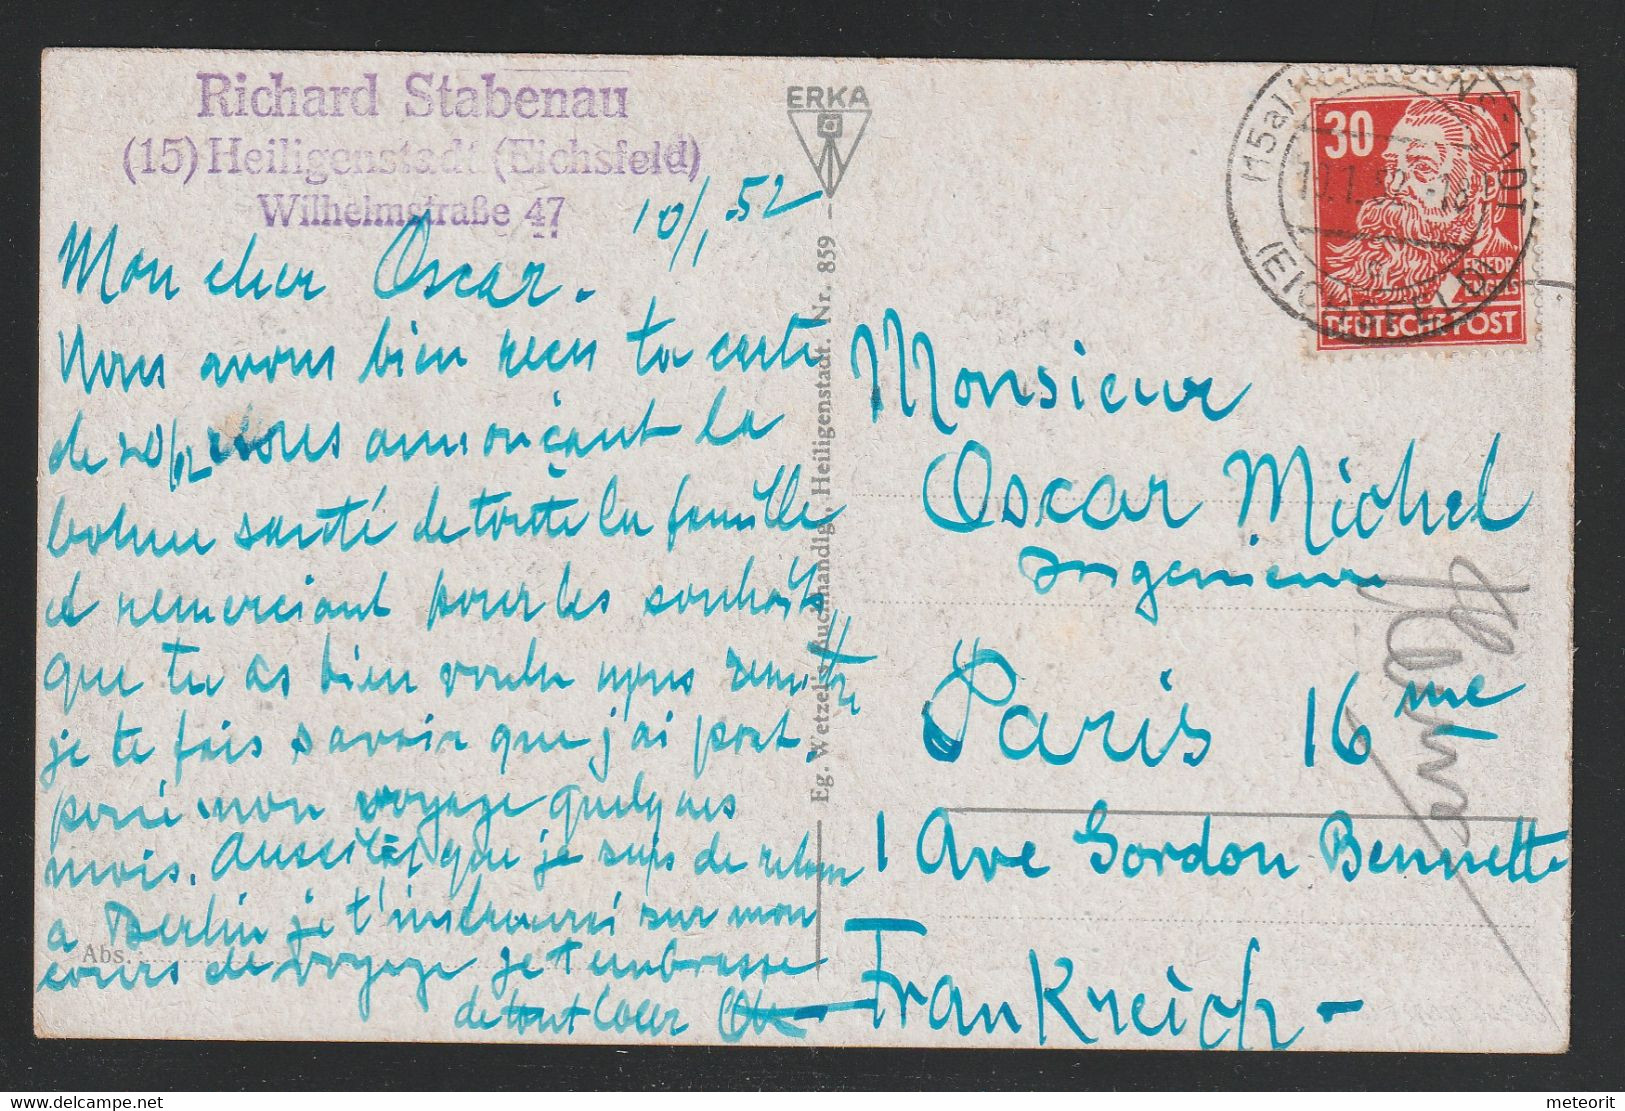 Richard Stabenau
(15) Heiligenstadt (Eichsfeld)
Wilhelmstraße 47
10/1.52
Mon cher Oscar.
Nous avons bien recu ta carte
de 20/12 annonçant la
bonne santé de toute la famille
et remerciant pour les souhaits
que tu as bien voulu nous
je te fais savoir que j'ai post-
posé mon voyage quelques
mois. Aussitôt que je suis de retour
a Berlin je t'informerai sur mon
cours de voyage je t'embrasse
de tout coeur
Abs.:
ERKA
Eg. Wetzel's Buchhandlg., Heiligenstadt. Nr. 859
30
FRIEDR. ENGELS
DEUTSCHE POST
(15a) HEILIGENSTADT
10.1.52.-18
(EICHSFELD)
Monsieur
Oscar Michel
Ingenieur
Paris 16 me
1 Ave Gordon Bennette
Frankreich -
meteorit